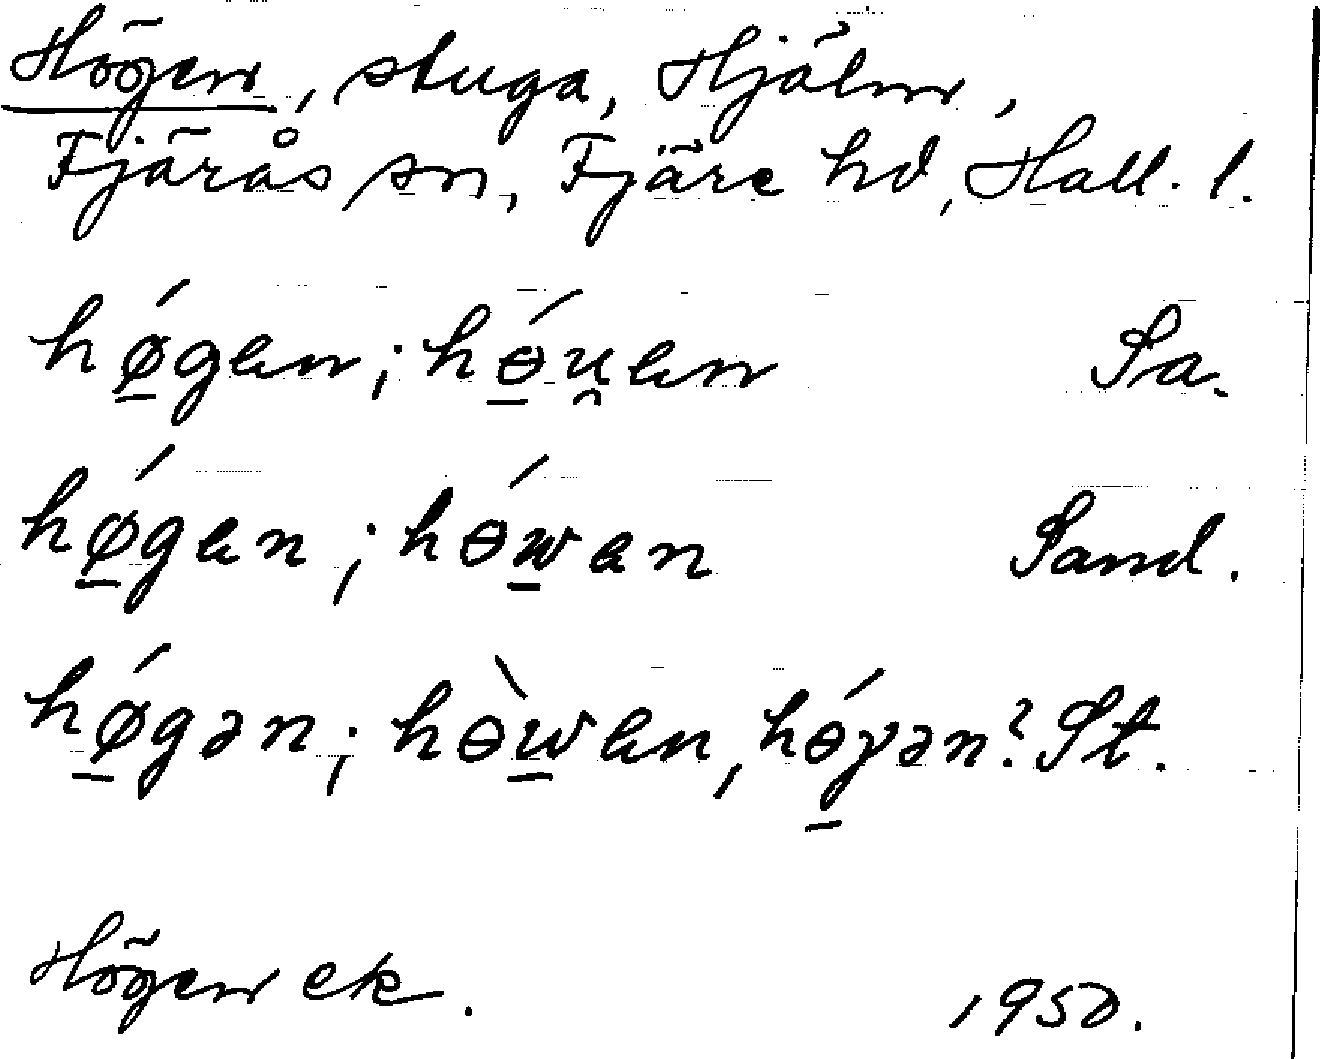 Högen, stuga, Hjälm,
Fjärås sn, Fjäre hd, Hall. l.
hǿ̲gen; hɵ̲́u̯en Sa.
hǿ̲gen; hɵ́w̲en Sand.
hǿ̲gən; hɵ̀w̲en, hɵ̲́γən? St.
Högen ek. 1950.